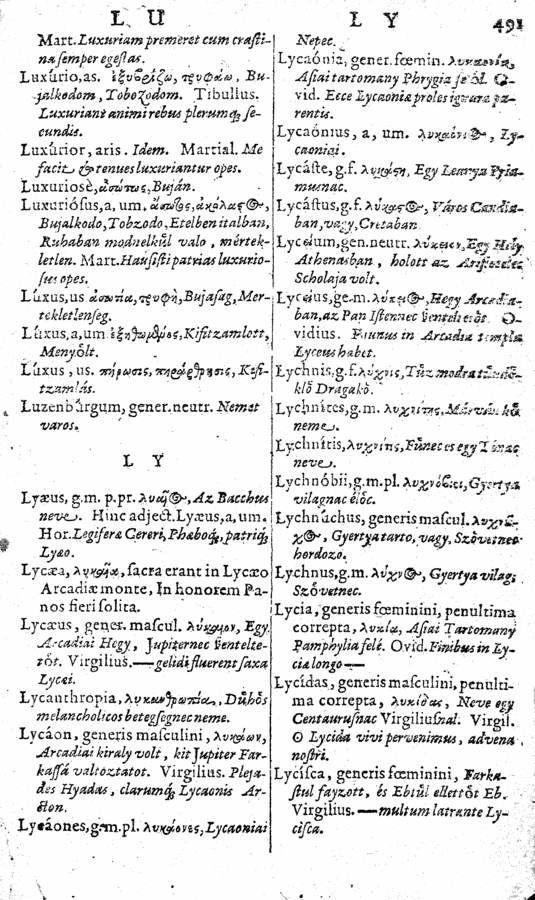 L U
L Y
491
Mart. Luxuriam premeret cum crasti-
na semper egestas.
Luxúrio, as. ἐξυβρίζω, τρυφάω, Bu-
jalkodom, Tobozodom. Tibullus.
Luxuriant animi rebus plerumq; se-
cundis.
Luxúrior, aris. Idem. Martial. Me
facit & tenues luxuriantur opes.
Luxuriosè, ἀσώτως, Buján.
Luxuriósus, a, um. ἄσωτος, ἀκόλαςος,
Bujalkodo, Tobzodo, Etelben italban,
Ruhaban modnelkűl valo, mértek-
letlen. Mart. Hausisti patrias luxurio-
sus opes.
Lúxus, us ἀσωτία, τρυφὴ, Bujasag, Mer-
tekletlenseg.
Lúxus, a, um. Kifitzamlott,
Menyőlt.
Lúxus, us. πήρωσις, Kifi-
tzamlás.
Luzenbúrgum, gener. neutr. Nemet
varos.
L Y
Lyæus, g.m. p.pr. λυαῖος, Az Bacchus
neve. Hinc adject. Lyæus, a, um.
Hor. Legifera Cereri, Phæboq́, patriq́;
Lyæo.
Lycæa, λυκαῖα, sacra erant in Lycæo
Arcadiæ monte, In honorem Pa-
nos fieri solita.
Lycæus, gener. mascul. λύκαιον, Egy
Arcadiai Hegy, Jupiternec ßentelte-
tőt. Virgilius. — gelidi fluerent saxa
Lycæi.
Lycanthropia, λυκανθρωπία, Dűhős
melancholicos betegsegnec neme.
Lycáon, generis masculini, λυκάων,
Arcadiai kiraly volt, kit Jupiter Far-
kassá valtoztatot. Virgilius. Pleja-
des Hyadas, clarumq́; Lycaonis Ar-
cton.
Lycáones, g.m.pl. λυκάονες, Lycaoniai
Nepec.
Lycaónia, gener. fœmin. λυκαονία,
Asiai tartomany Phrygia felől. O-
vid. Ecce Lycaoniæ proles ignara pa-
rentis.
Lycaónius, a, um. λυκαόνιος, Ly-
caoniai.
Lycáste, g.f. λυκάςη, Egy Leanya Pria-
musnac.
Lycástus, g.f. λύκαςος, Város Candia-
ban, vagy, Cretaban.
Lycéium, gen. neutr. λύκειον, Egy Hely
Athenasban, holott az Aristoteles
Scholaja volt.
Lyceius, ge.m. λύκειος, Hegy Arcadia-
ban, az Pan Istennec ßenteltetőt. O-
vidius. Faunus in Arcadia templa
Lyceus habet.
Lychnis, g.f. λύχνις, Tűz modra
klő Dragakő.
Lychnítes, g.m. λυχνίτης, Márván kő
neme.
Lychnítis, λυχνίτις, Fűnec es egy
neve.
Lychnóbii, g.m.pl. λυχνόβιοι, Gyertya
vilagnac élőc.
Lychnúchus, generis mascul. λυχνοῦ-
χος, Gyertya tarto, vagy, Szővetnec
hordozo.
Lychnus, g.m. λύχνος, Gyertya vilag,
Szővetnec.
Lycia, generis fœminini, penultima
correpta, λυκία, Asiai Tartomany
Pamphylia felé. Ovid. Finibus in Ly-
cia longo —
Lycídas, generis masculini, penulti-
ma correpta, λυκίδας, Neve egy
Centaurusnac Virgiliusnál. Virgil.
O Lycida vivi pervenimus, advena
nostri.
Lycísca, generis fœminini, Farka-
stul fayzott, és Ebtűl ellettőt Eb.
Virgilius. — multum latrante Ly-
cisca.